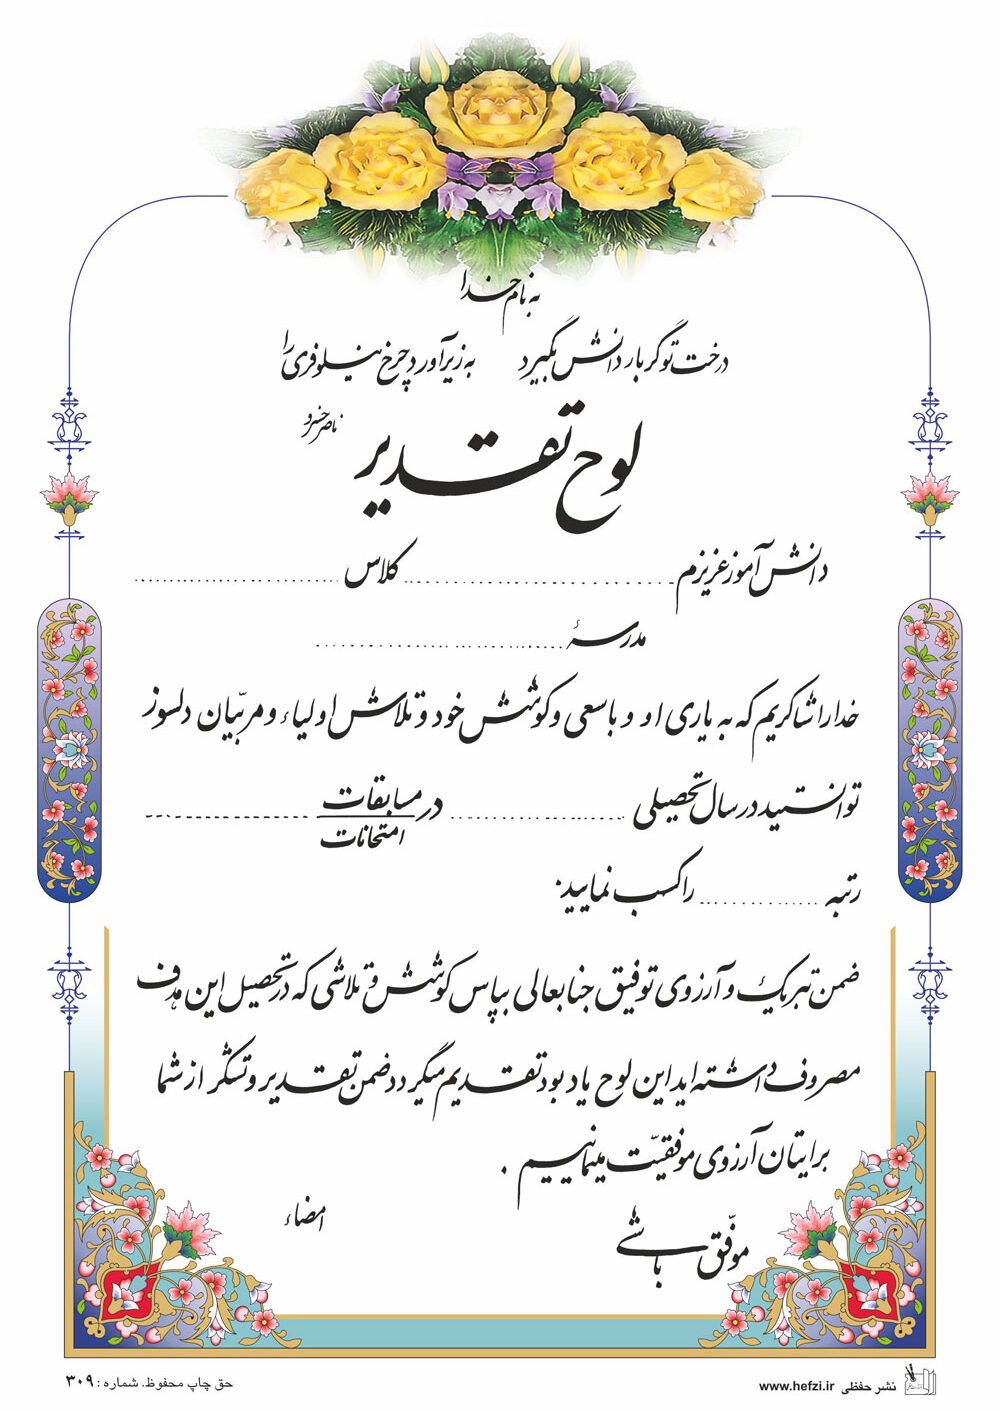 به نام خدا
درخت تو گر بار دانش بگیرد به زیر آورد چرخ نیلوفری را
ناصر خسرو
لوح تقدیر
دانش آموز عزیزم ........................ کلاس ........................
مدرسهٔ ........................
خدا را شاکریم که به یاری او و با سعی و کوشش خود و تلاش اولیاء و مربّیان دلسوز
توانستید در سال تحصیلی ........................ در مسابقات ........................
امتحانات
رتبه ............ را کسب نمایید.
ضمن تبریک و آرزوی توفیق جنابعالی بپاس کوشش و تلاشی که در تحصیل این هدف
مصروف داشته اید این لوح یاد بود تقدیم میگردد ضمن تقدیر و تشکّر از شما
برایتان آرزوی موفقیّت مینمائیم .
امضاء
موفّق باشی
نشر حفظی www.hefzi.ir
حق چاپ محفوظ. شماره : ۳۰۹